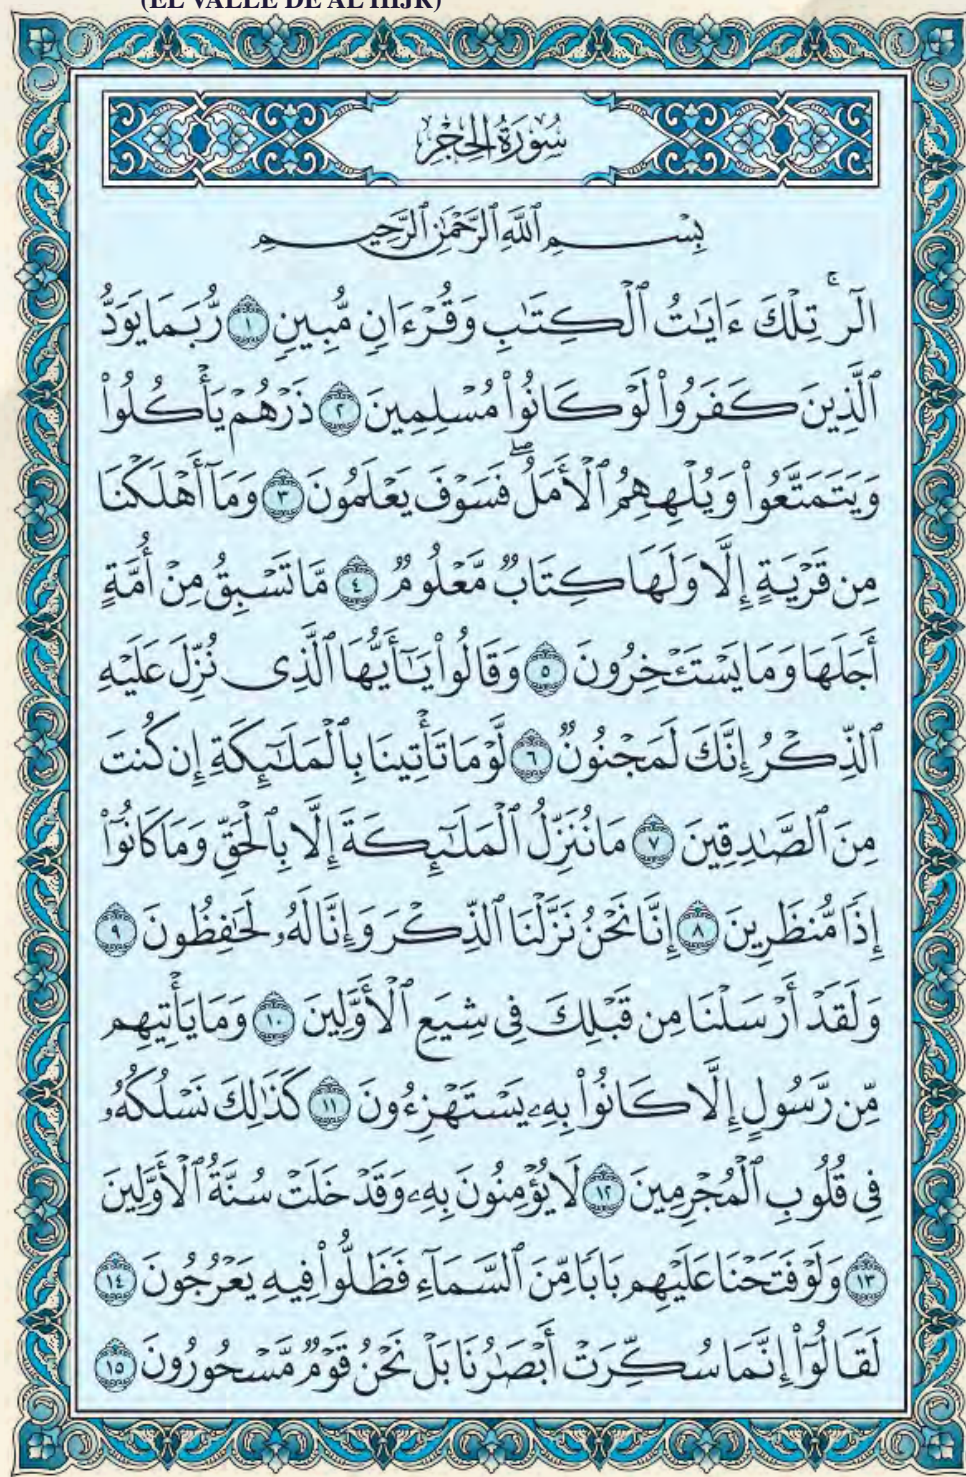 (EL VALLE DE AL HIJR)
سُورَةُ الحِجْرِ
بِسْمِ ٱللَّهِ ٱلرَّحْمَٰنِ ٱلرَّحِيمِ
الٓرۚ تِلْكَ ءَايَٰتُ ٱلْكِتَٰبِ وَقُرْءَانٍ مُّبِينٍ ١ رُّبَمَا يَوَدُّ
ٱلَّذِينَ كَفَرُوا۟ لَوْ كَانُوا۟ مُسْلِمِينَ ٢ ذَرْهُمْ يَأْكُلُوا۟
وَيَتَمَتَّعُوا۟ وَيُلْهِهِمُ ٱلْأَمَلُۖ فَسَوْفَ يَعْلَمُونَ ٣ وَمَآ أَهْلَكْنَا
مِن قَرْيَةٍ إِلَّا وَلَهَا كِتَابٌ مَّعْلُومٌ ٤ مَّا تَسْبِقُ مِنْ أُمَّةٍ
أَجَلَهَا وَمَا يَسْتَـْٔخِرُونَ ٥ وَقَالُوا۟ يَٰٓأَيُّهَا ٱلَّذِى نُزِّلَ عَلَيْهِ
ٱلذِّكْرُ إِنَّكَ لَمَجْنُونٌ ٦ لَّوْ مَا تَأْتِينَا بِٱلْمَلَٰٓئِكَةِ إِن كُنتَ
مِنَ ٱلصَّٰدِقِينَ ٧ مَا نُنَزِّلُ ٱلْمَلَٰٓئِكَةَ إِلَّا بِٱلْحَقِّ وَمَا كَانُوٓا۟
إِذًا مُّنظَرِينَ ٨ إِنَّا نَحْنُ نَزَّلْنَا ٱلذِّكْرَ وَإِنَّا لَهُۥ لَحَٰفِظُونَ ٩
وَلَقَدْ أَرْسَلْنَا مِن قَبْلِكَ فِى شِيَعِ ٱلْأَوَّلِينَ ١٠ وَمَا يَأْتِيهِم
مِّن رَّسُولٍ إِلَّا كَانُوا۟ بِهِۦ يَسْتَهْزِءُونَ ١١ كَذَٰلِكَ نَسْلُكُهُۥ
فِى قُلُوبِ ٱلْمُجْرِمِينَ ١٢ لَا يُؤْمِنُونَ بِهِۦ وَقَدْ خَلَتْ سُنَّةُ ٱلْأَوَّلِينَ
١٣ وَلَوْ فَتَحْنَا عَلَيْهِم بَابًا مِّنَ ٱلسَّمَآءِ فَظَلُّوا۟ فِيهِ يَعْرُجُونَ ١٤
لَقَالُوٓا۟ إِنَّمَا سُكِّرَتْ أَبْصَٰرُنَا بَلْ نَحْنُ قَوْمٌ مَّسْحُورُونَ ١٥